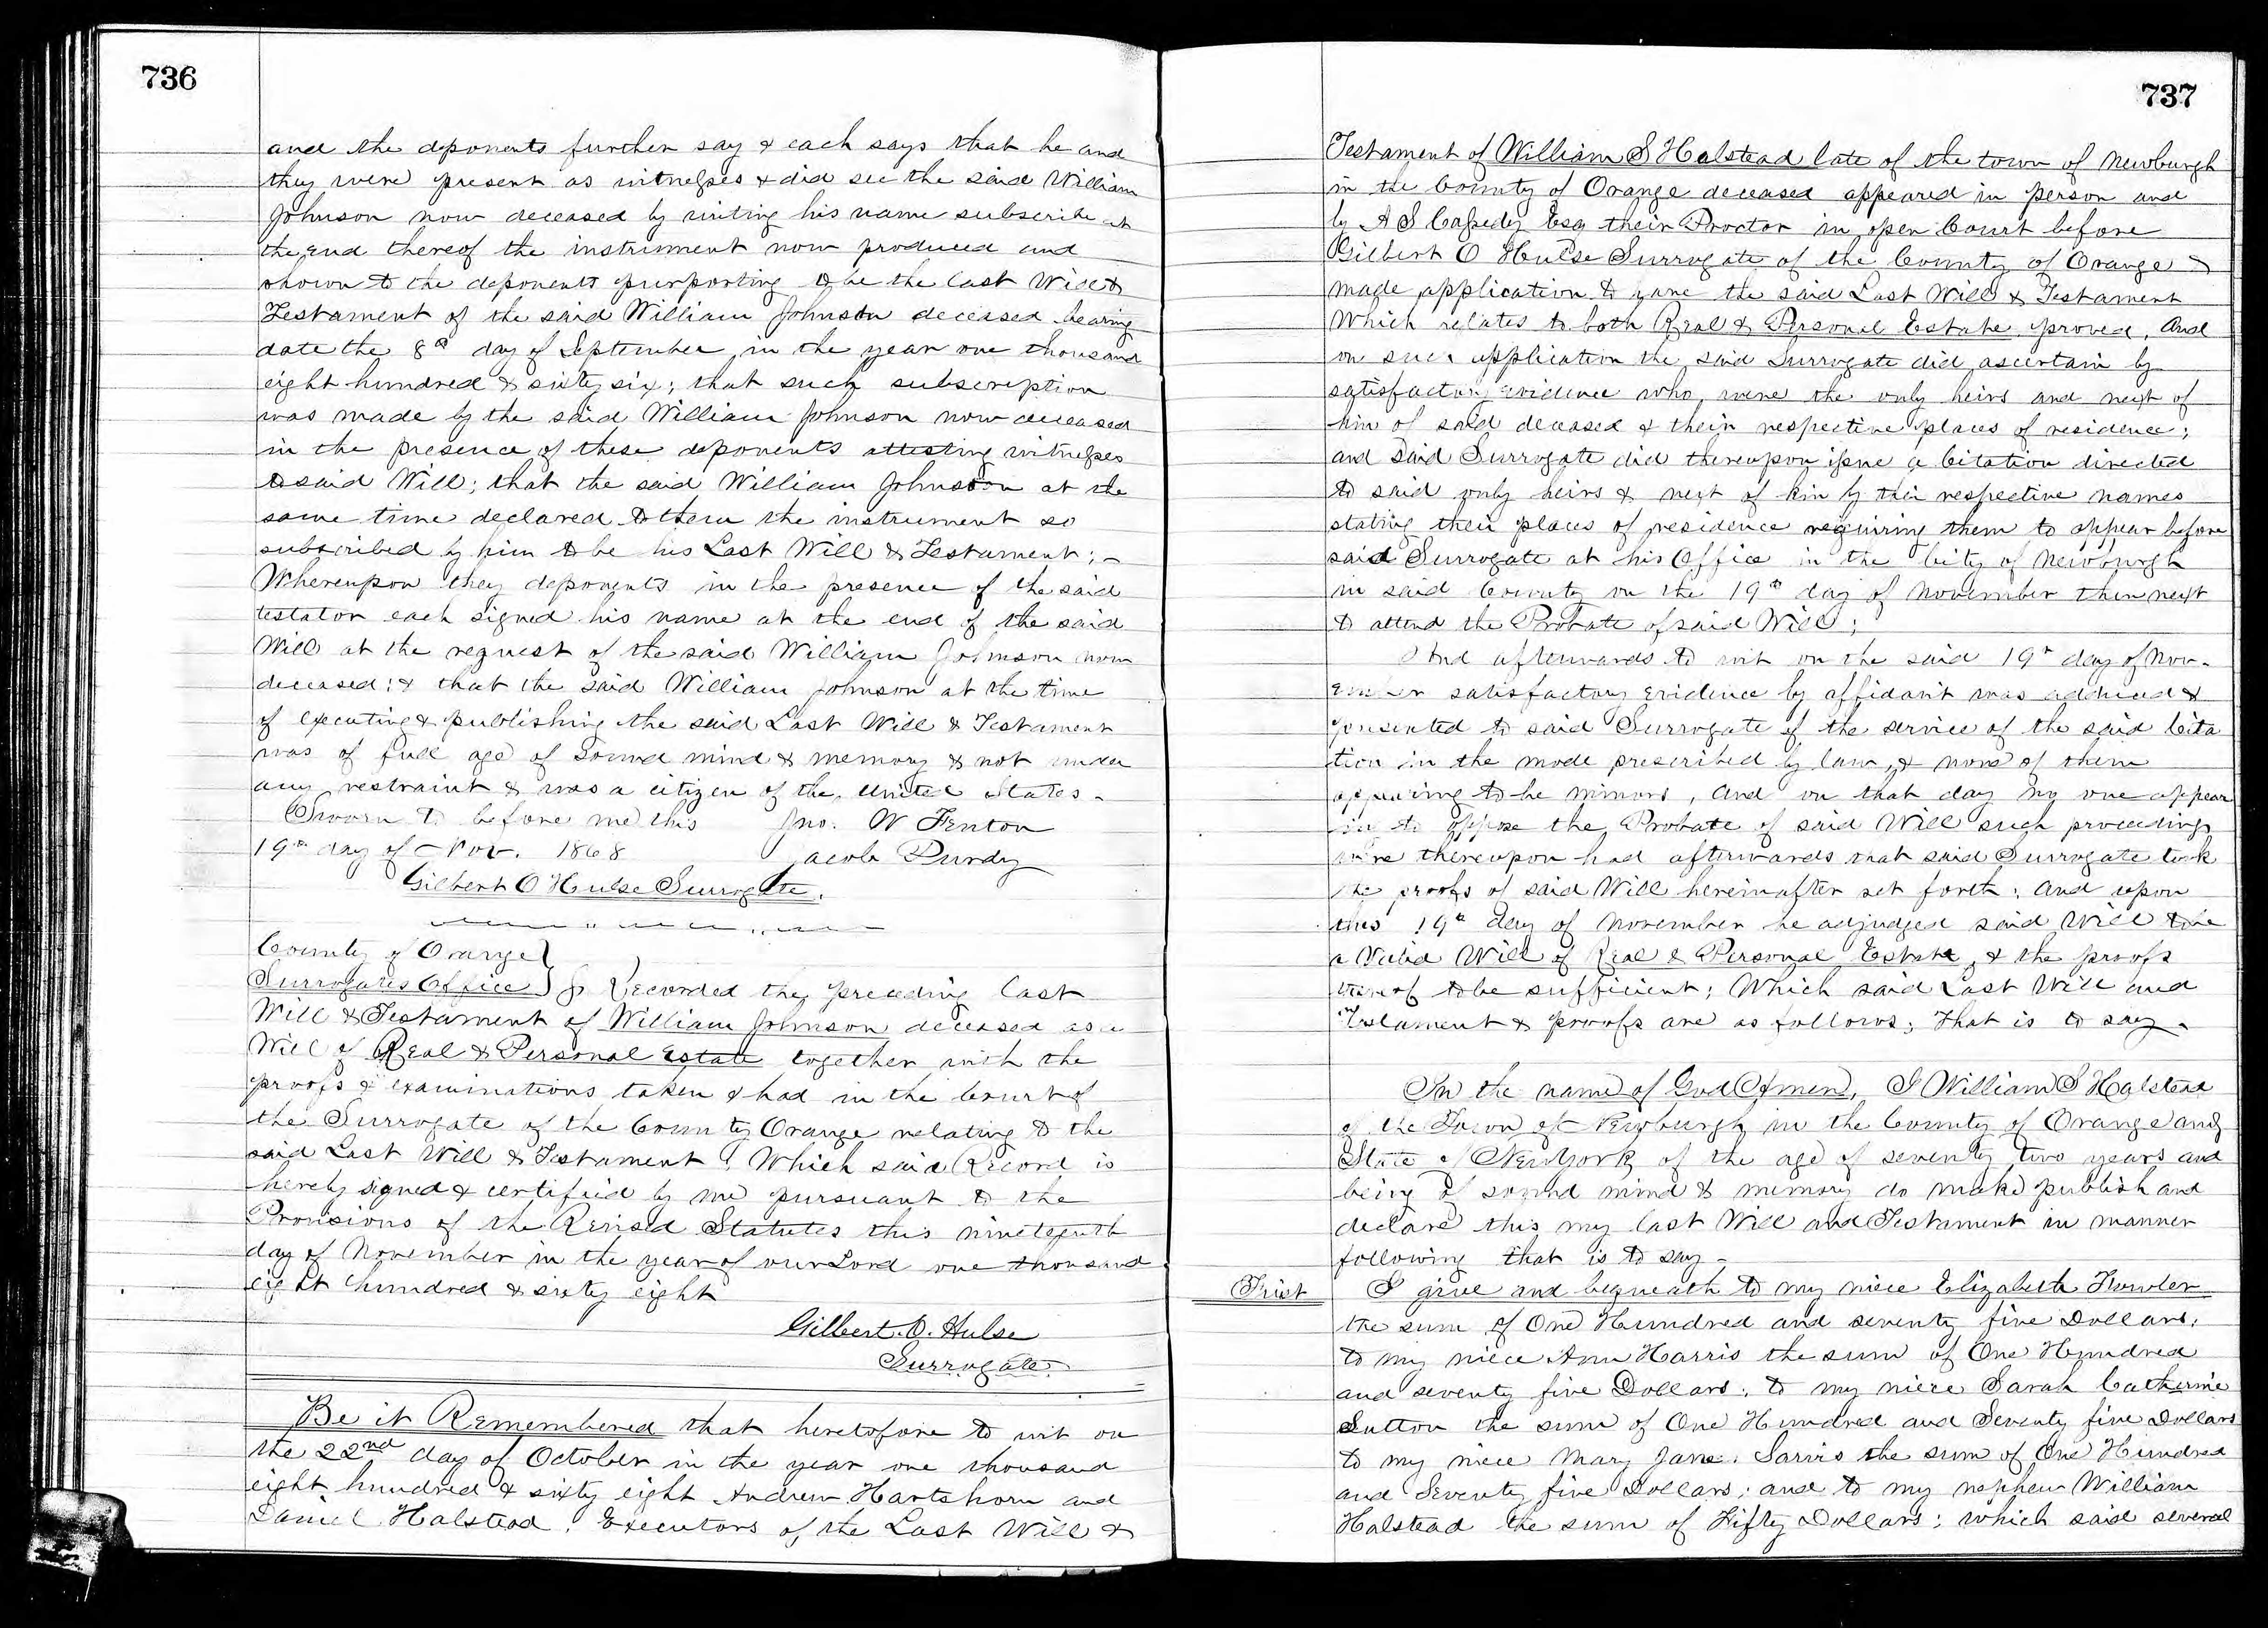 736
and the deponents further say & each says that he and
they were present as witnesses & did see the said William
Johnson now deceased by writing his name subscribe at
the end thereof the instrument now produced and
shown to the deponents purporting to be the last Will &
Testament of the said William Johnson deceased bearing
date the 8th day of September in the year one thousand
eight hundred & sixty six; that such subscription
was made by the said William Johnson now deceased
in the presence of these deponents attesting witnesses
to said Will; that the said William Johnson at the
same time declared to them the instrument so
subscribed by him to be his Last Will & Testament; –
Whereupon they deponents in the presence of the said
testator each signed his name at the end of the said
Will at the request of the said William Johnson now
deceased: & that the said William Johnson at the time
of executing & publishing the said Last Will & Testament
was of full age of sound mind & memory & not under
any restraint & was a citizen of the United States –
Sworn to before me this Jno. W Fenton
19th day of Nov. 1868 Jacob Purdy
Gilbert O Hulse Surrogate.
County of Orange }
Surrogates Office } ss Recorded the preceding Last
Will & Testament of William Johnson deceased as a
Will of Real & Personal Estate together with the
proofs & examinations taken & had in the Court of
the Surrogate of the County Orange relating to the
said Last Will & Testament; Which said Record is
hereby signed & certified by me pursuant to the
Provisions of the Revised Statutes this nineteenth
day of November in the year of our Lord one thousand
eight hundred & sixty eight
Gilbert. O. Hulse
Surrogate.
Be it Remembered that heretofore to wit on
the 22nd day of October in the year one thousand
eight hundred & sixty eight Andrew Hartshorn and
Daniel Halstead, Executors of the Last Will &
737
Testament of William S Halstead late of the town of Newburgh
in the County of Orange deceased appeared in person and
by A S Cassedy Esq their Proctor in open Court before
Gilbert O Hulse Surrogate of the County of Orange &
made application to have the said Last Will & Testament
Which relates to both Real & Personal Estate proved. And
on such application the said Surrogate did ascertain by
satisfactory evidence who were the only heirs and next of
kin of said deceased & their respective places of residence;
and said Surrogate did thereupon issue a Citation directed
to said only heirs & next of kin by their respective names
stating their places of residence requiring them to appear before
said Surrogate at his Office in the City of Newburgh
in said County on the 19th day of November then next
to attend the Probate of said Will;
And afterwards to wit on the said 19th day of Nov-
ember satisfactory evidence by affidavit was adduced &
presented to said Surrogate of the service of the said Cita
tion in the mode prescribed by law, & none of them
appearing to be minors, And on that day no one appear
ing to oppose the Probate of said Will such proceedings
were thereupon had afterwards that said Surrogate took
the proofs of said Will hereinafter set forth; And upon
this 19th day of November he adjudged said Will to be
a Valid Will of Real & Personal Estate, & the proofs
thereof to be sufficient; Which said Last Will and
Testament & proofs are as follows; That is to say –
In the name of God Amen, I William S Halstead
of the Town of Newburgh in the County of Orange and
State of New York of the age of seventy two years and
being of sound mind & memory do make publish and
declare this my last Will and Testament in manner
following that is to say –
First I give and bequeath to my niece Elizabeth Fowler
the sum of One Hundred and seventy five Dollars;
to my niece Ann Harris the sum of One Hundred
and seventy five Dollars; to my niece Sarah Catherine
Sutton the sum of One Hundred and Seventy five Dollars
to my niece Mary Jane Sarvis the sum of One Hundred
and Seventy five Dollars; and to my nephew William
Halstead the sum of Fifty Dollars; which said several